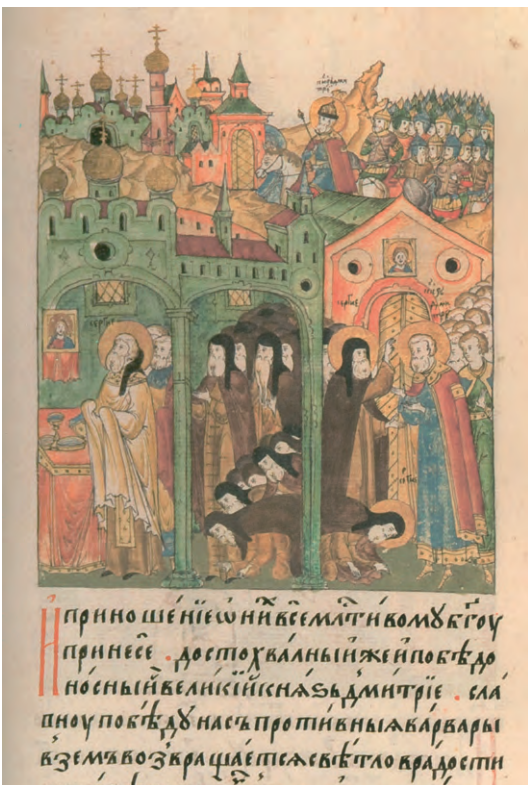 И приношенїе ѡ ни́ всемл҇тивомꙋ бг҃оу
принесе . достохвалныи же и побѣдо
носныи великїи кнѧѕь дмитрїе . сла
вноу побѣдꙋ на съпротивныѧ варвары
вземъ возвращаетсѧ свѣтло в радости